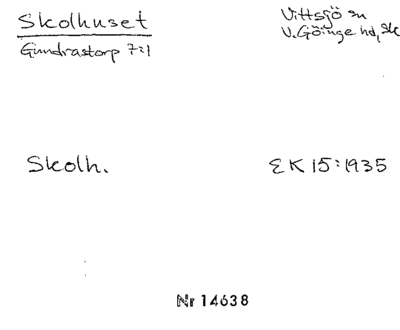 Skolhuset
Gundrastorp 7:1
Vittsjö sn
V. Göinge hd, Sk
Skolh.
EK 15:1935
Nr 14638